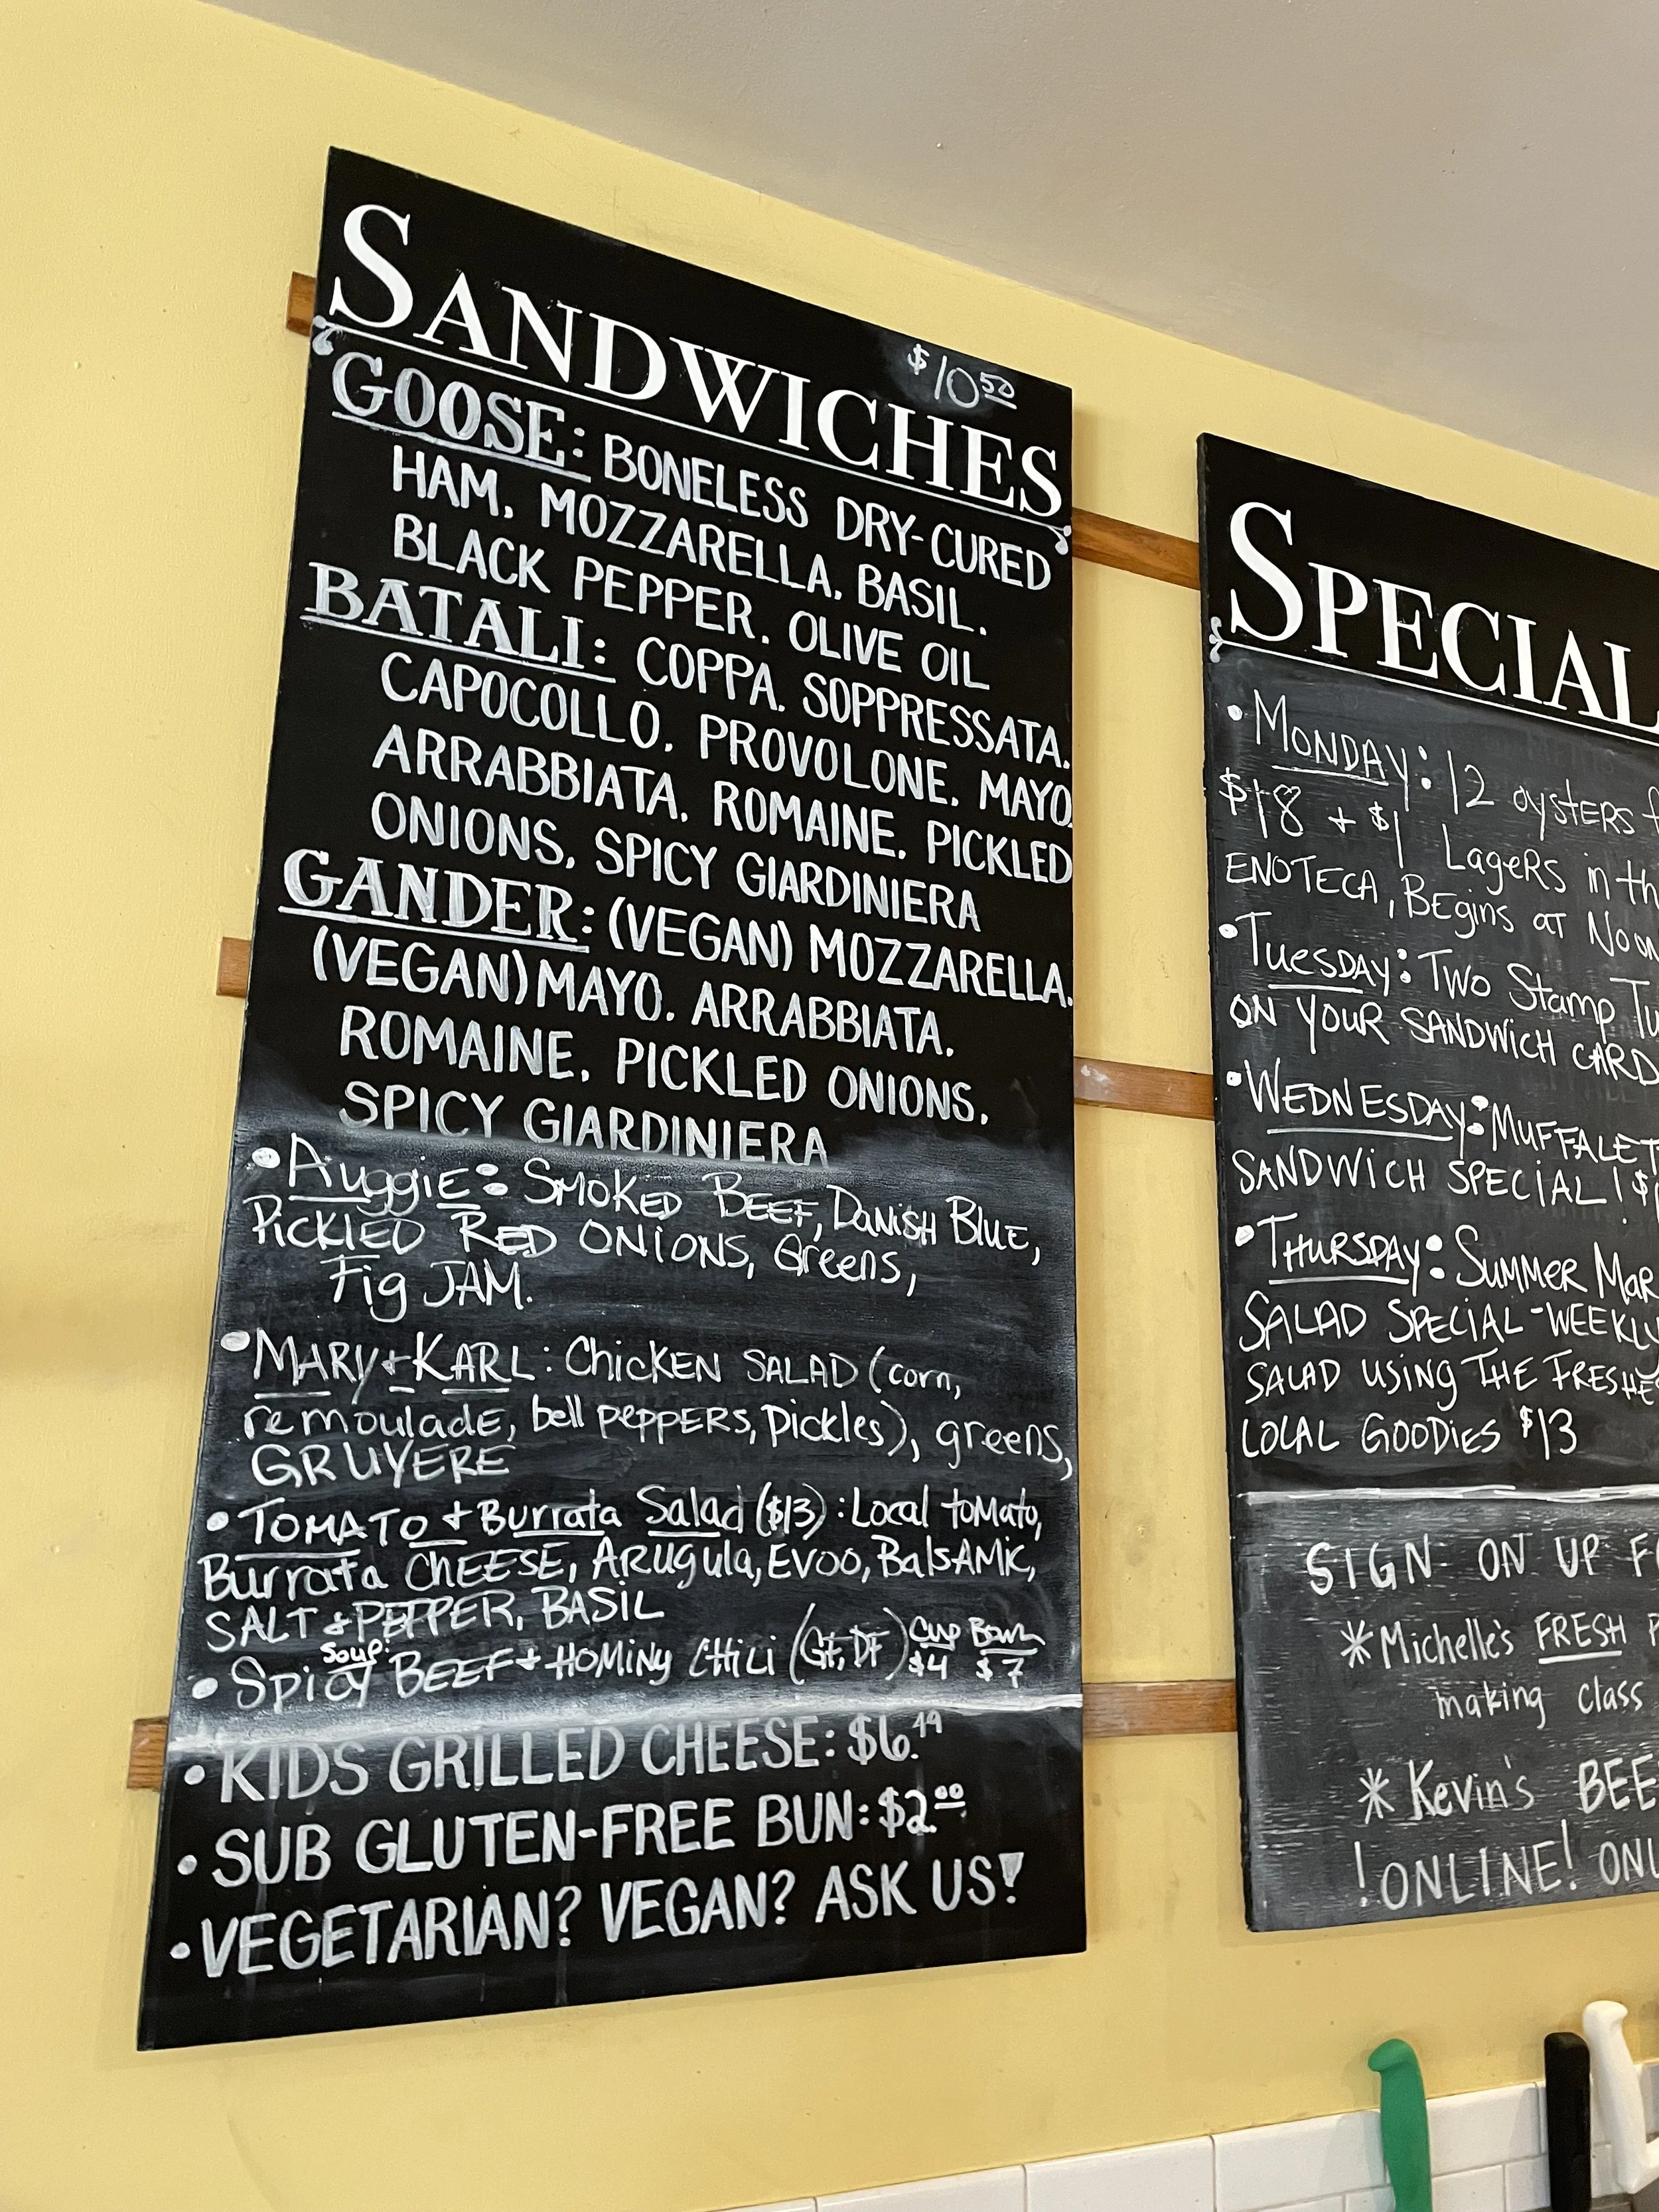 SANDWICHES
$10.50
GOOSE: BONELESS DRY-CURED
HAM, MOZZARELLA, BASIL,
BLACK PEPPER, OLIVE OIL
BATALI: COPPA, SOPPRESSATA,
CAPOCOLLO, PROVOLONE, MAYO
ARRABBIATA, ROMAINE, PICKLED
ONIONS, SPICY GIARDINIERA
GANDER: (VEGAN) MOZZARELLA,
(VEGAN) MAYO, ARRABBIATA,
ROMAINE, PICKLED ONIONS,
SPICY GIARDINIERA
• AuggiE: SMOKED BEEF, DANISH BLUE,
PICKLED RED ONIONS, Greens,
Fig JAM.
• MARY + KARL: CHICKEN SALAD (corn,
remoulade, bell PEPPERS, Pickles), greens,
GRUYERE
• TOMATO + Burrata Salad ($13): Local tomato,
Burrata CHEESE, Arugula, EVOO, BalsAMic,
SALT & PEPPER, BASIL
Soup:
• Spicy BEEF + HOMiNy CHiLi (GF, DF) Cup $4 Bowl $7
• KIDS GRILLED CHEESE: $6.49
• SUB GLUTEN-FREE BUN: $2.00
• VEGETARIAN? VEGAN? ASK US!
SPECIAL
• MONDAY: 12 oysters
$18 + $1 LagerS in
ENOTECA, BEgins AT NOON
• TuesDAY: TWO Stamp
ON YOUR SANDWICH CARD
• WEDNESDAY: MUFFALET
SANDWICH SPECIAL! $
• THURSDAY: SUMMER Mar
SALAD SPECIAL - WEEKLY
SALAD USING THE FRESHE
LOCAL GOODIES $13
SIGN ON UP
* Michelle's FRESH
making class
* Kevin's BEE
! ONLINE! ONL